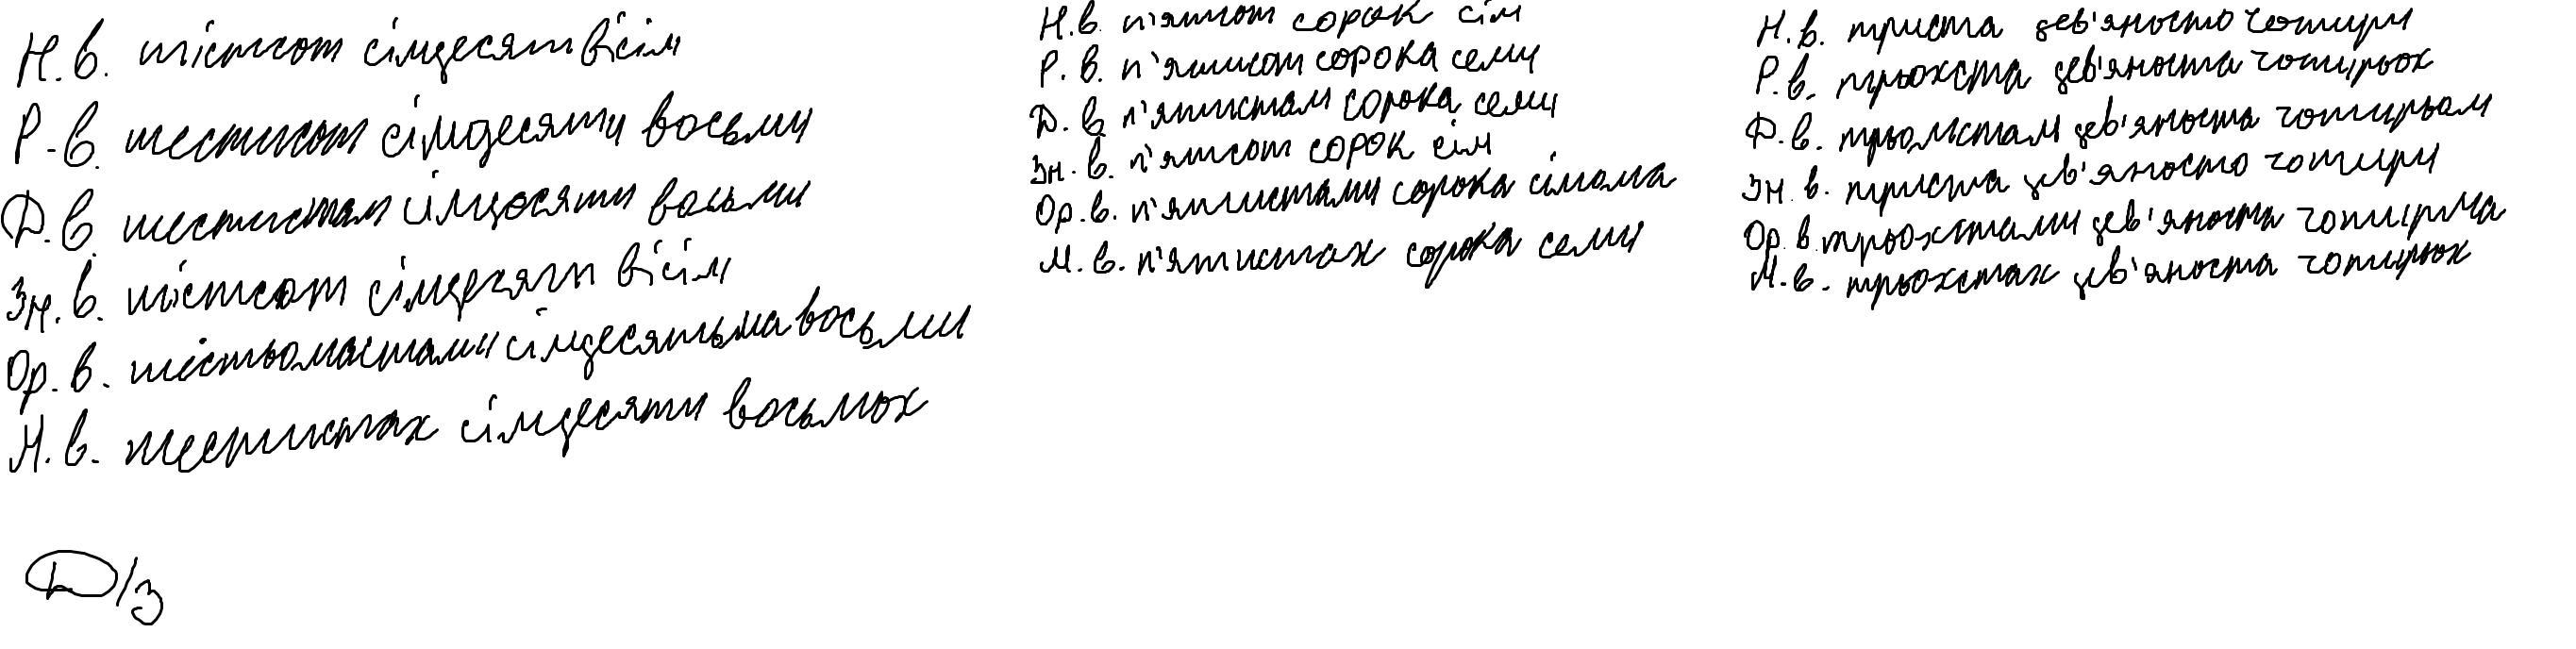 Н.в. шістсот сімдесят вісім
Р.в. шестисот сімдесяти восьми
Д.в. шестистам сімдесяти восьми
Зн.в. шістсот сімдесят вісім
Ор.в. шістьомастами сімдесятьма восьми
М.в. шестистах сімдесяти восьмох
Д/з
Н.в. п'ятсот сорок сім
Р.в. п'ятисот сорока семи
Д.в. п'ятистам сорока семи
Зн.в. п'ятсот сорок сім
Ор.в. п'ятистами сорока сімома
М.в. п'ятистах сорока семи
Н.в. триста дев'яносто чотири
Р.в. трьохста дев'яноста чотирьох
Д.в. трьомстам дев'яноста чотирьом
Зн.в. триста дев'яносто чотири
Ор.в. трьохстами дев'яноста чотирма
М.в. трьохстах дев'яноста чотирьох